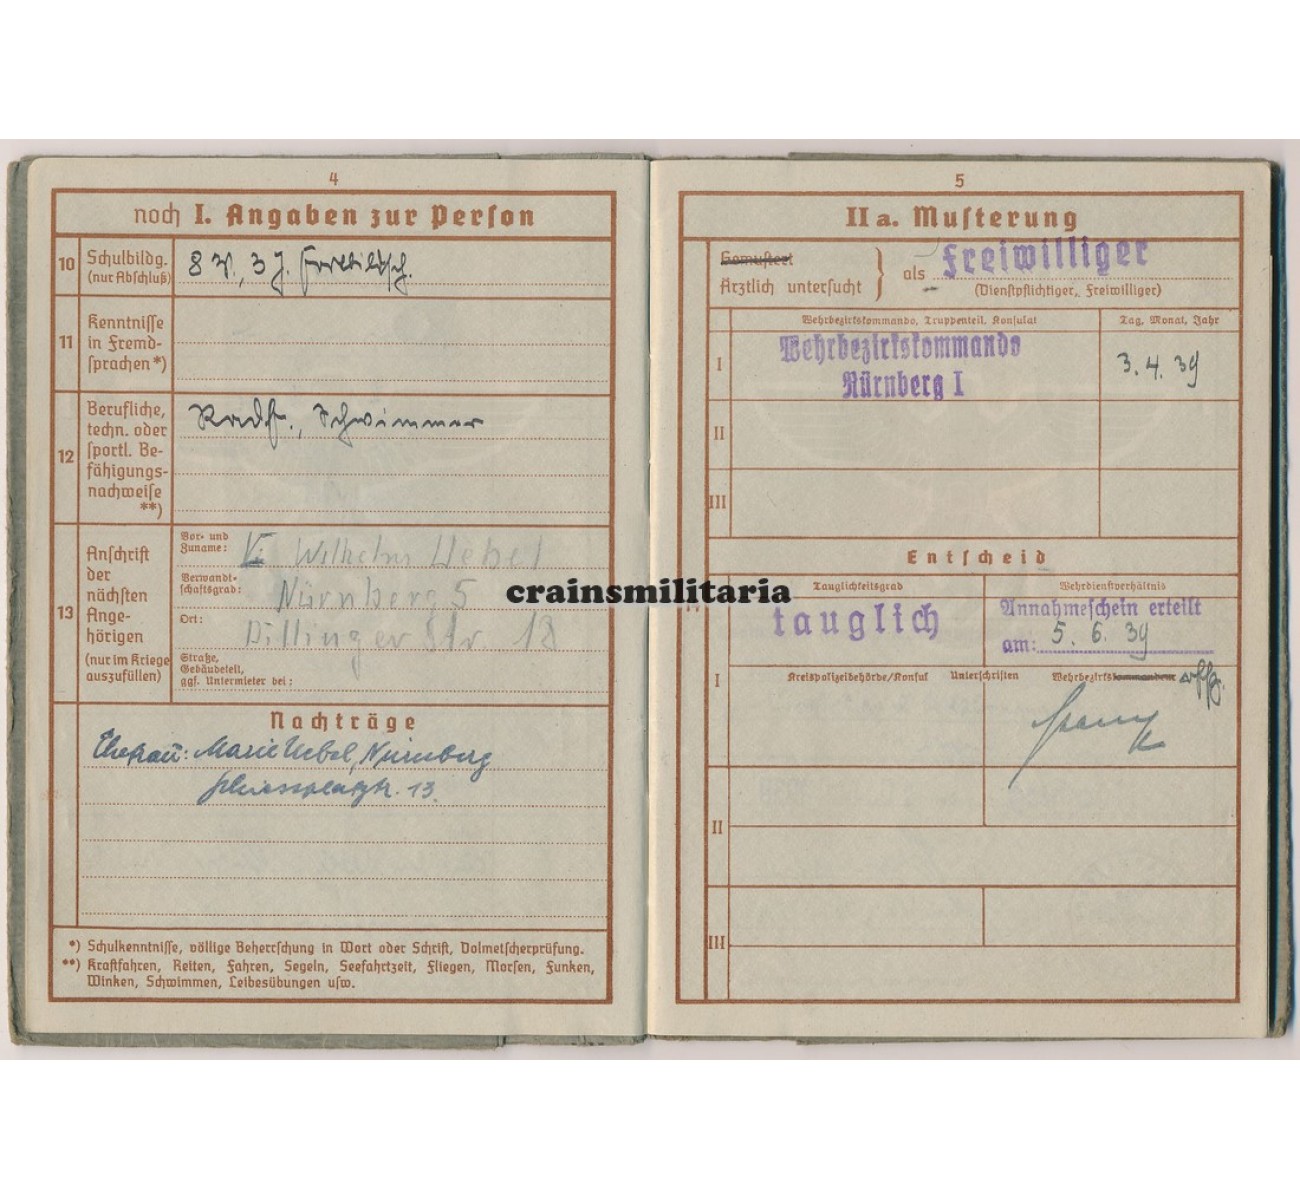 4
noch I. Angaben zur Person
10 Schulbildg. (nur Abschluß)
8 V., 3 J. Fortbildsch.
11 Kenntnisse in Fremd-sprachen *)
12 Berufliche, techn. oder sportl. Be-fähigungs-nachweise **)
Radf., Schwimmer
13 Anschrift der nächsten Ange-hörigen (nur im Kriege auszufüllen)
Vor- und Zuname: V. Wilhelm Uebel
Verwandt-schaftsgrad: Nürnberg 5
Ort: Dillinger Str. 18
Straße, Gebäudeteil, ggf. Untermieter bei:
Nachträge
Ehefrau: Marie Uebel, Nürnberg
13.
*) Schulkenntnisse, völlige Beherrschung in Wort oder Schrift, Dolmetscherprüfung.
**) Kraftfahren, Reiten, Fahren, Segeln, Seefahrtzeit, Fliegen, Morsen, Funken,
Winken, Schwimmen, Leibesübungen usw.
5
II a. Musterung
Gemustert
Ärztlich untersucht
als Freiwilliger
(Dienstpflichtiger, Freiwilliger)
Wehrbezirkskommando, Truppenteil, Konsulat
Tag, Monat, Jahr
I
Wehrbezirkskommando
Nürnberg I
3. 4. 39
II
III
Entscheid
Tauglichkeitsgrad
Wehrdienstverhältnis
tauglich
Annahmeschein erteilt
am: 5. 6. 39
I
Kreispolizeibehörde/Konsul Unterschriften Wehrbezirkskommandeur
II
III
crainsmilitaria